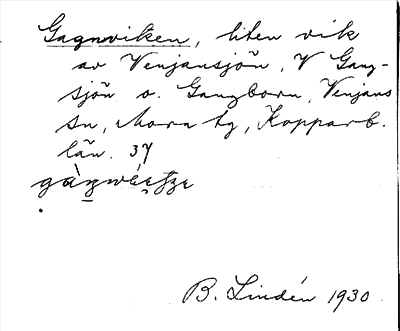 Gagnviken, liten vik
av Venjansjön, V Gang-
sjön o. Gangborn, Venjans
sn, Mora tg, Kopparb.
län. 37
B. Lindén 1930